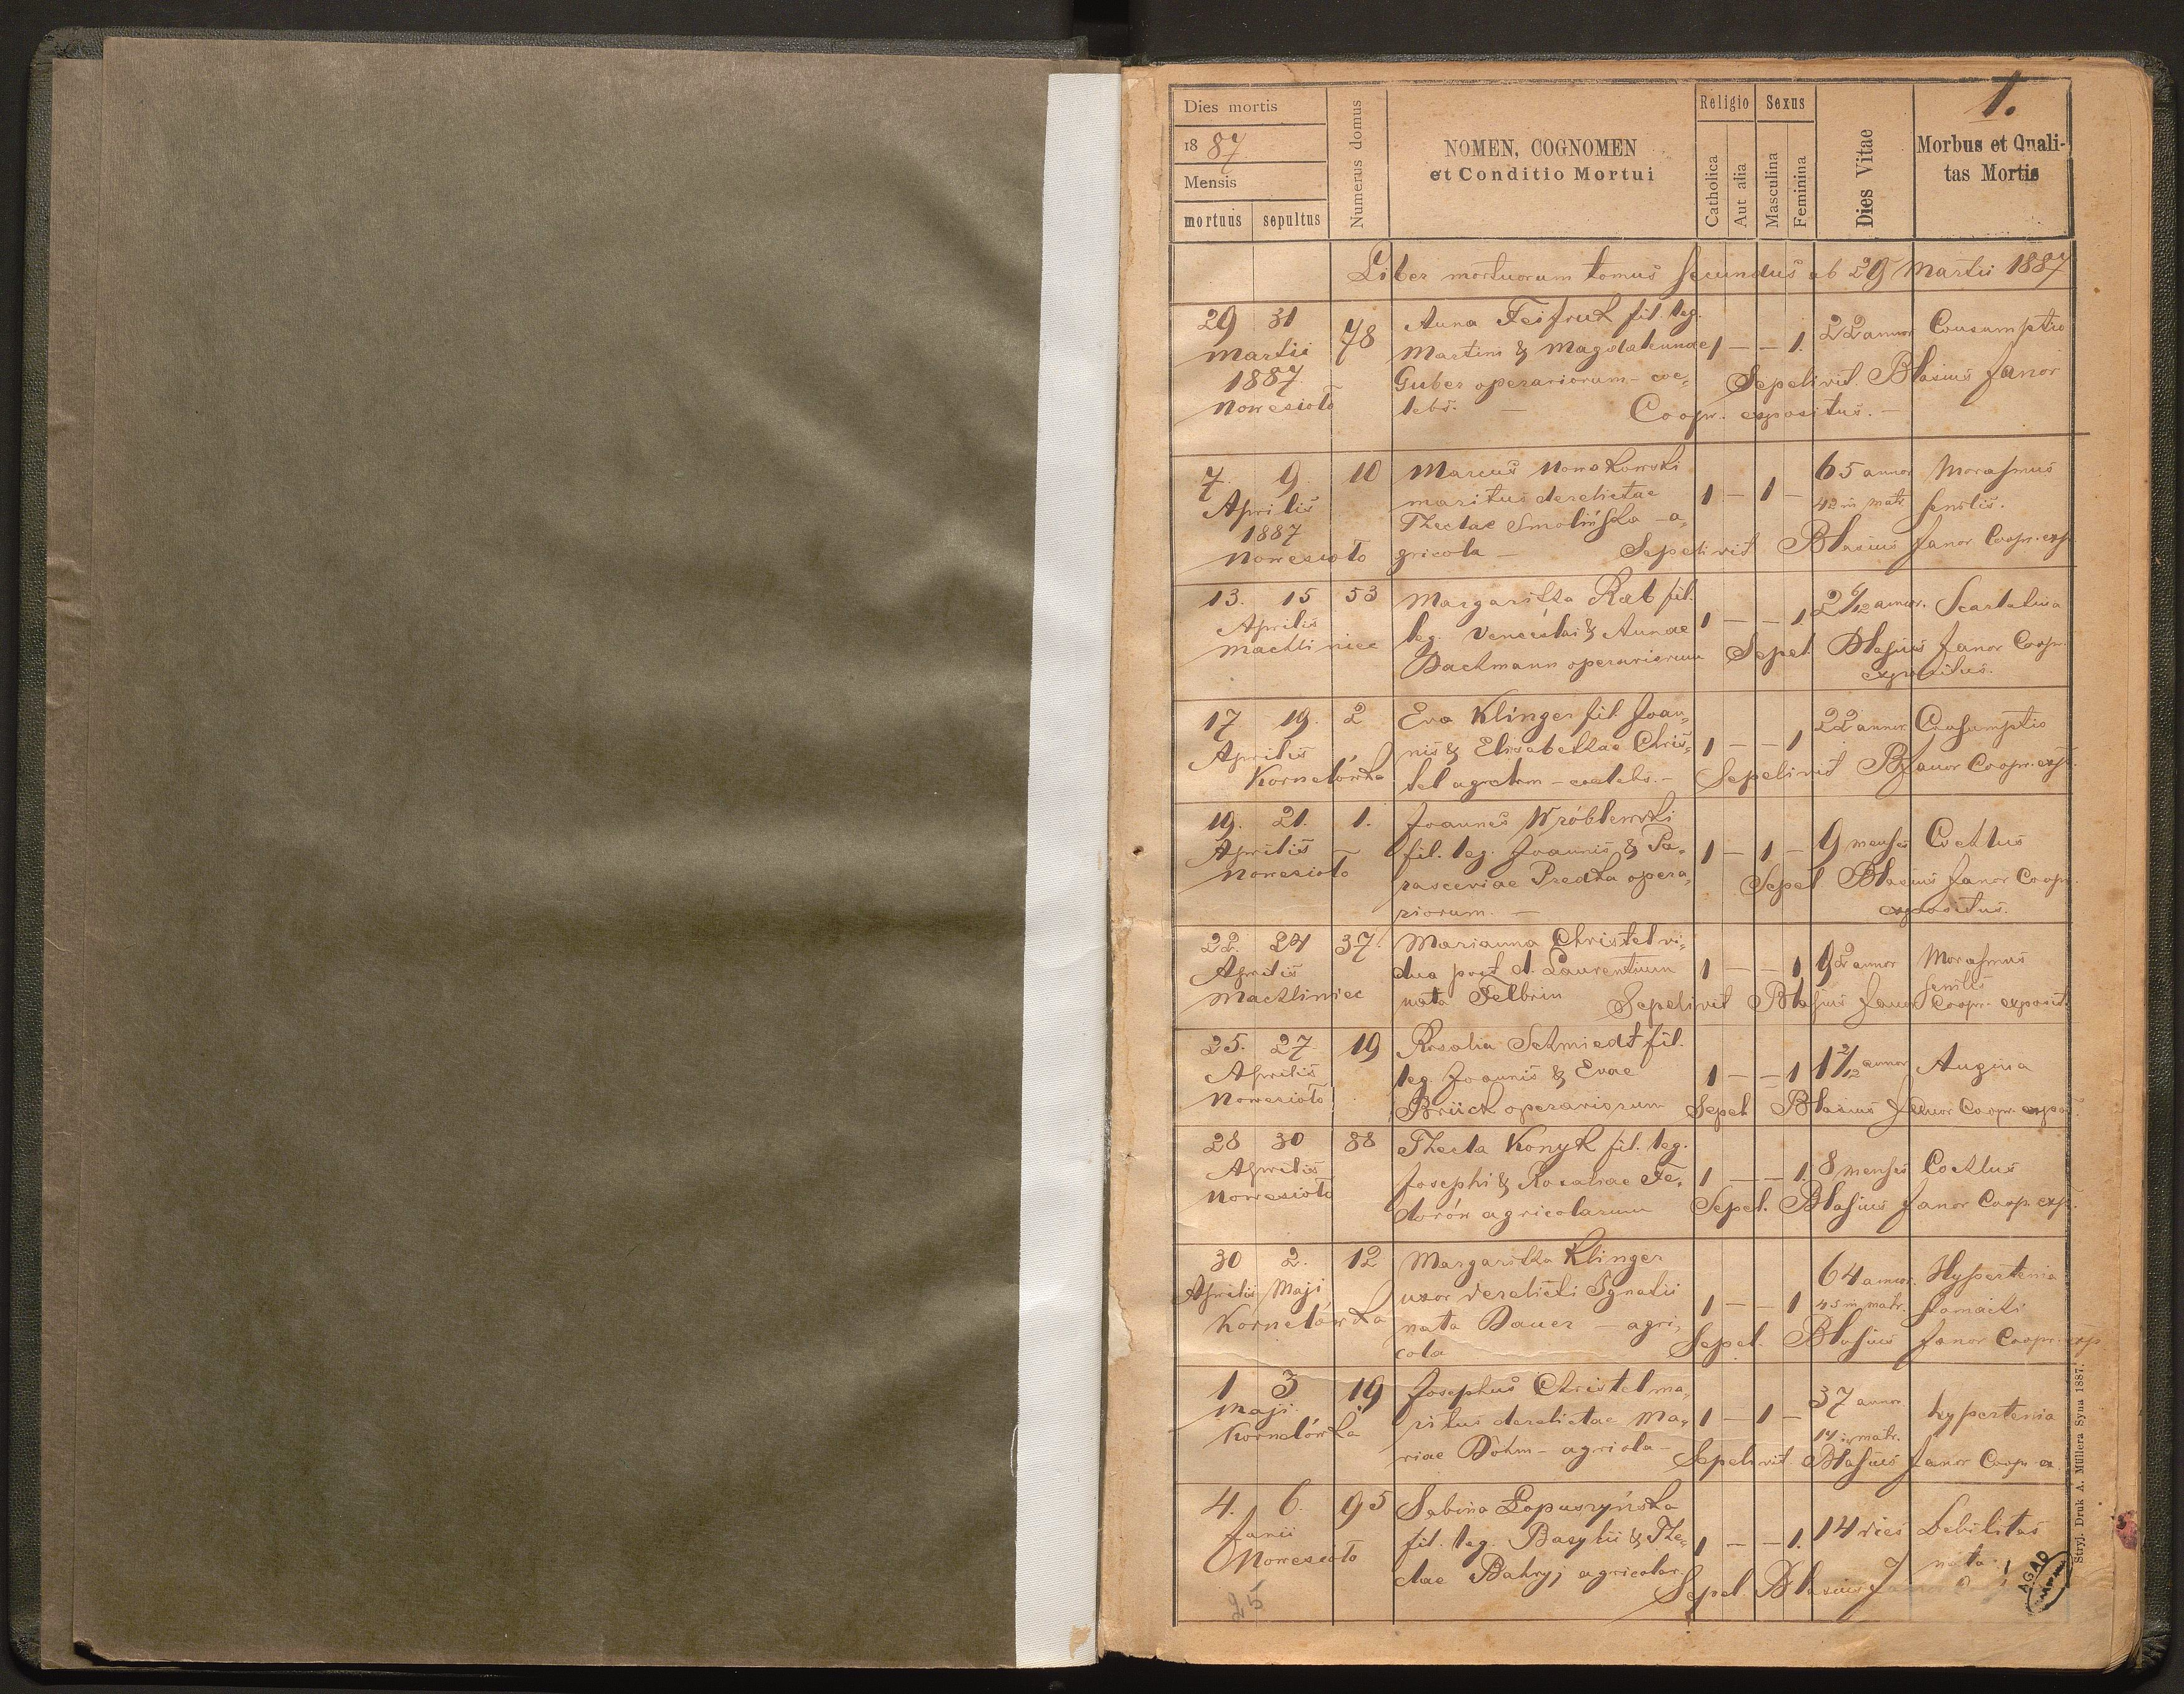 1.
Dies mortis
18 87
Mensis
mortuus sepultus
Numerus domus
NOMEN, COGNOMEN
et Conditio Mortui
Religio
Catholica
Aut alia
Sexus
Masculina
Feminina
Dies Vitae
Morbus et Quali-
tas Mortis
Liber mortuorum tomus secundus ab 29 Martii 1887
29 31 78 Anna Feifruk fil. leg.
Martii Martini & Magdalenae 1 — — 1. 22 annor Consumptio
1887. Guber operariorum - coe, Sepelivit. Blasius Janor
Nowesioło lebs. — Coopr. expositus. —
7. 9. 10 Marcus Nowakowski 65 annor Morasmus
Aprilis maritus derelictae 1 — 1 — 42 in matr. senilis.
1887 Theclae Smolińska - a,
Nowesioło gricola — Sepelivit Blasius Janor Coopr. exp
13. 15 53 Margaritha Rab fil. 2 6/12 annor. Scarlatina
Aprilis leg. Venceslai & Annae 1 — — 1
Machliniec Bachmann operariorum Sepel. Blasius Janor Coopr.
expositus.
17 19. 2 Eva Klinger fil. Joan, 22 annor Consumptio
Aprilis nis & Elisabethae Chris, 1 — — 1
Kornelówka tel agrclrm - coelebs. - Sepelivit B Janor Coopr. exp.
19. 21. 1. Joannes Wróblewski
Aprilis fil. leg. Joannis & Pa, 1 — 1 — 9 menses Cocklus
Nowesioło rasceviae Predka opera, Sepel Blasius Janor Coopr.
riorum. — expositus.
22. 24 37. Marianna Christel vi,
Aprilis dua post d. Laurentium 1 — — 1 92 annor Morasmus
senilis
Machliniec nata Felbrin Sepelivit Blasius Janor Coopr. exposit.
25. 27 19 Rosalia Schmiedt fil.
Aprilis leg. Joannis & Evae 1 — — 1 1 2/12 annor Angina
Nowesioło Brück operariorum Sepel Blasius Janor Coopr. expos.
28 30 88 Thecla Konyk fil. leg.
Aprilis Josephi & Rosaliae Fe, 1 — — 1. 8 menses Cocklus
Nowesioło dorów agricolarum Sepel. Blasius Janor Coop. exp.
30 2. 12 Margaritha Klinger 64 annor. Hypertenia
Aprilis Maji uxor derelicti Ignatii 1 — — 1 45 in matr. stomachi
Kornelówka nata Bauer — agri,
cola Sepel. Blasius Janor Coopr. exp
1 3 19 Josephus Christel ma, 37 annor.
Maji ritus derelictae Ma, 1 — 1 — 14 in matr. hypertenia
Kornelówka riae Böhm - agriola - Sepelivit. Blasius Janor Coopr. ex.
4. 6. 95 Sabina Łopuszyńska
Junii fil. leg. Basylii & The, 1 — — 1. 14 dies Debilitas
Nowesioło clae Bahryj agricolar. nata
Sepel. Blasius J
25
AGAD
Stryj. Druk A. Müllera Syna 1887.